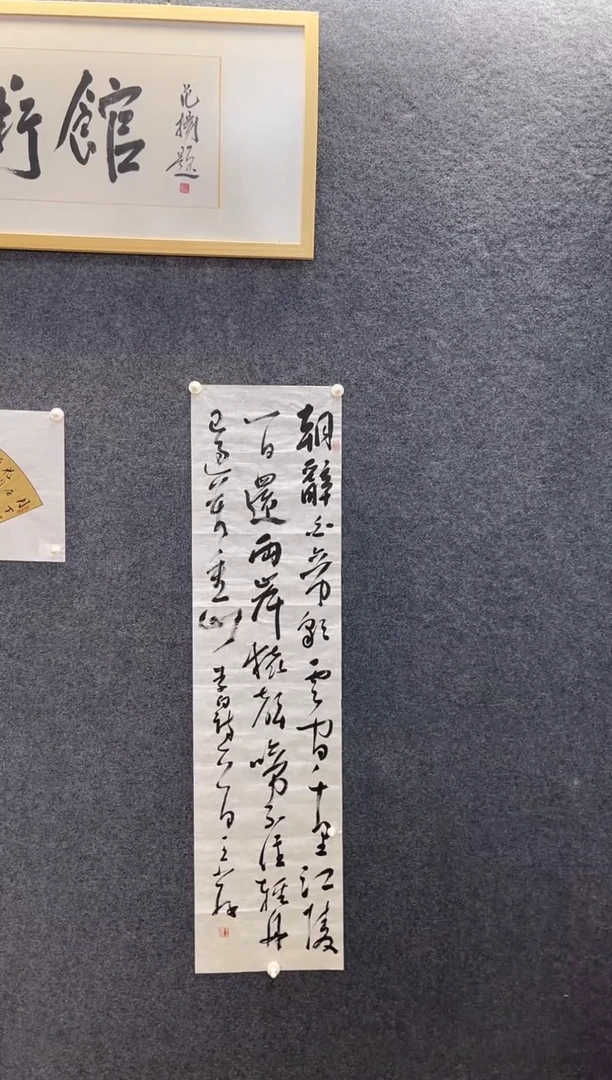 館
題
朝辭白帝彩雲間千里江陵
一日還兩岸猿聲啼不住輕舟
已過萬重山
李白詩